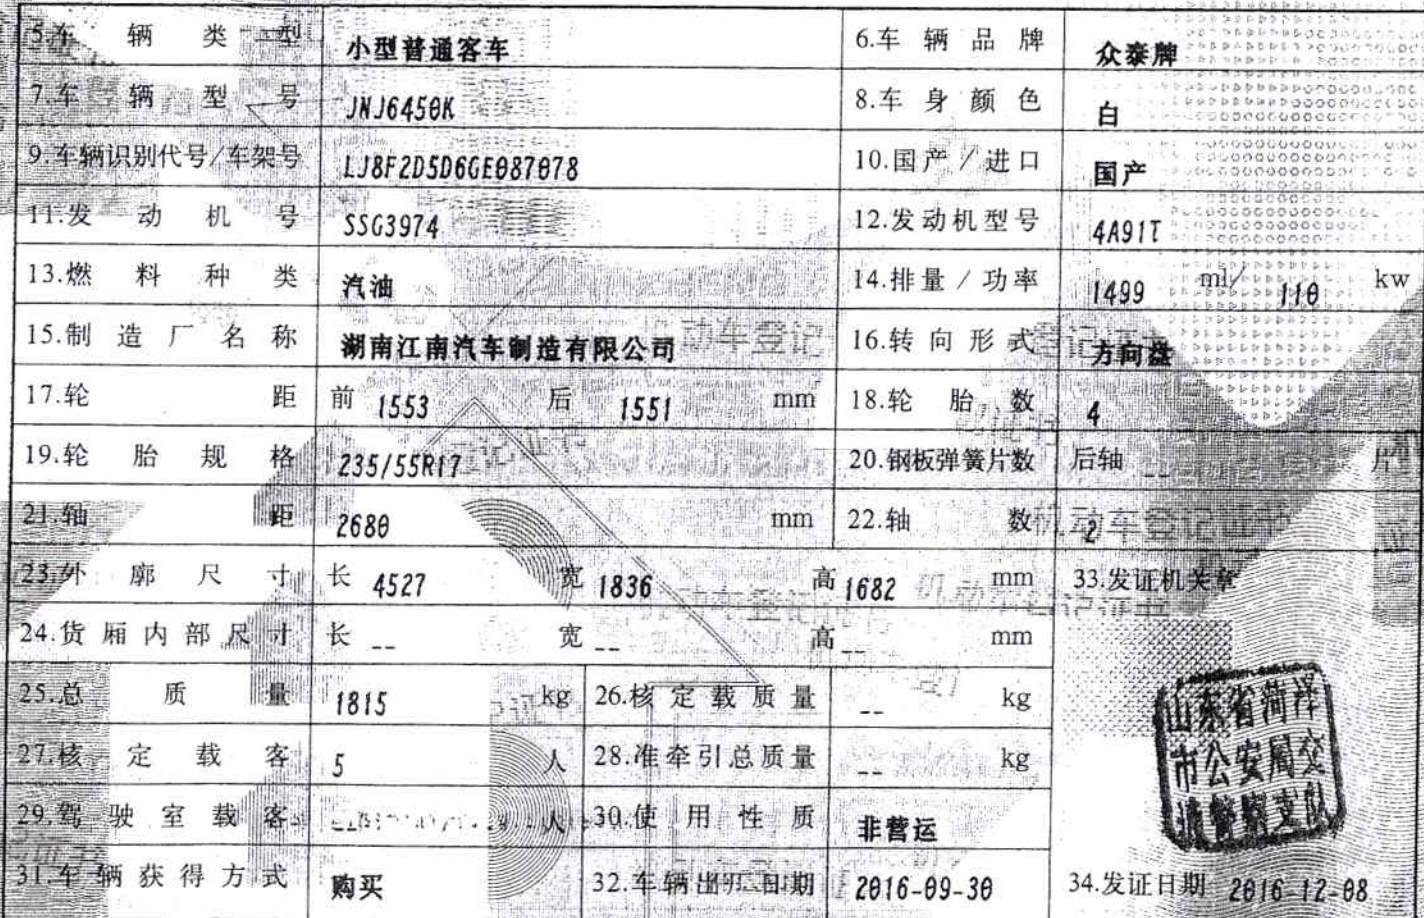 5.车辆类型 小型普通客车 6.车辆品牌 众泰牌
7.车辆型号 JNJ6450K 8.车身颜色 白
9.车辆识别代号/车架号 LJ8F2D5D6GE087078 10.国产/进口 国产
11.发动机号 SSG3974 12.发动机型号 4A91T
13.燃料种类 汽油 14.排量/功率 1499 ml/ 110 kw
15.制造厂名称 湖南江南汽车制造有限公司 16.转向形式 方向盘
17.轮距 前 1553 后 1551 mm 18.轮胎数 4
19.轮胎规格 235/55R17 20.钢板弹簧片数 后轴 -- 片
21.轴距 2680 mm 22.轴数 2
23.外廓尺寸 长 4527 宽 1836 高 1682 mm 33.发证机关章
24.货厢内部尺寸 长 -- 宽 -- 高 -- mm
25.总质量 1815 kg 26.核定载质量 -- kg
27.核定载客 5 人 28.准牵引总质量 -- kg
山东省菏泽
市公安局交
通警察支队
29.驾驶室载客 -- 人 30.使用性质 非营运
31.车辆获得方式 购买 32.车辆出厂日期 2016-09-30 34.发证日期 2016-12-08